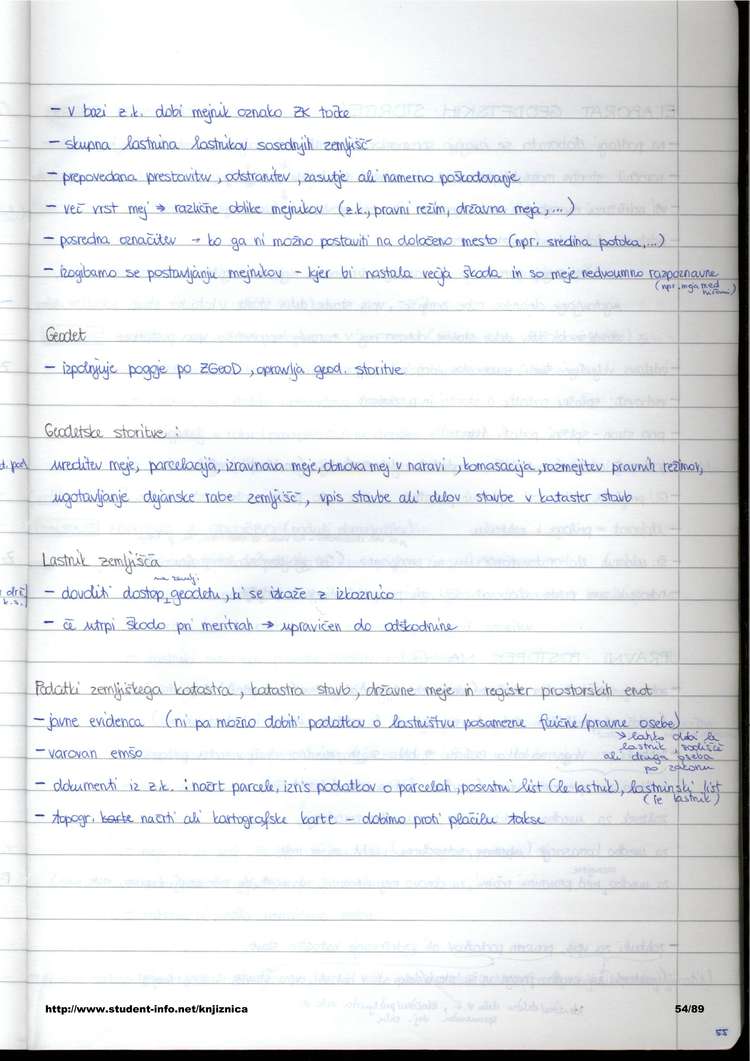 - v bazi z.k. dobi mejnik oznako ZK točke
- skupna lastnina lastnikov sosednjih zemljišč
- prepovedana prestavitev, odstranitev, zasutje ali namerno poškodovanje
- več vrst mej → različne oblike mejnikov (z.k., pravni režim, državna meja,...)
- posredna označitev → ko ga ni možno postaviti na določeno mesto (npr. sredina potoka,...)
- izogibamo se postavljanju mejnikov - kjer bi nastala večja škoda in so meje nedvoumno razpoznavne
(npr. meja med njivami)
Geodet
- izpolnjuje pogoje po ZGeoD, opravlja geod. storitve
Geodetske storitve:
ureditev meje, parcelacija, izravnava meje, obnova mej v naravi, komasacija, razmejitev pravnih režimov,
ugotavljanje dejanske rabe zemljišč, vpis stavbe ali delov stavbe v kataster stavb
Lastnik zemljišča
na zemlj.
- dovoliti dostop geodetu, ki se izkaže z izkaznico
- če utrpi škodo pri meritvah → upravičen do odškodnine
Podatki zemljiškega katastra, katastra stavb, državne meje in register prostorskih enot
- javne evidenca (ni pa možno dobiti podatkov o lastništvu posamezne fizične/pravne osebe)
→ lahko dobi le
lastnik, sodišče
ali druga oseba
po zakonu
- varovan emšo
- dokumenti iz z.k.: načrt parcele, izpis podatkov o parcelah, posestni list (le lastnik), lastninski list
(le lastnik)
- topogr. karte načrti ali kartografske karte - dobimo proti plačilu takse
http://www.student-info.net/knjiznica
54/89
55